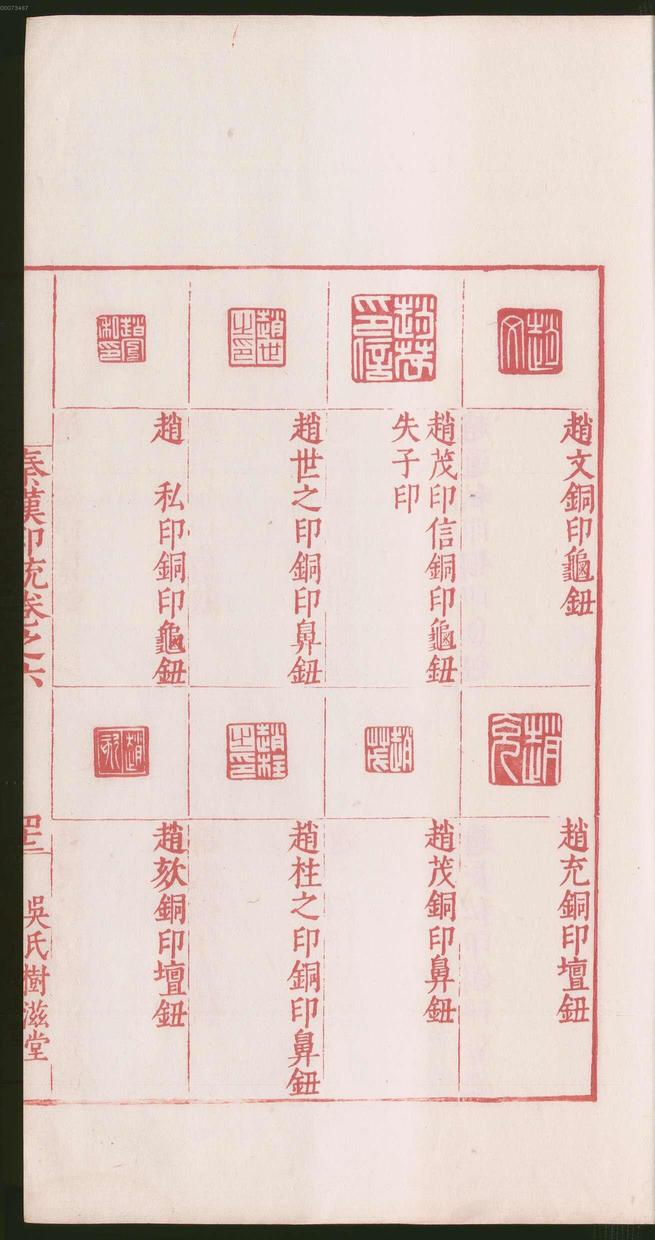 00073467
趙文銅印龜鈕
趙茂印信銅印龜鈕
失子印
趙世之印銅印鼻鈕
趙　私印銅印龜鈕
趙充銅印壇鈕
趙茂銅印鼻鈕
趙柱之印銅印鼻鈕
趙欬銅印壇鈕
秦漢印統卷之六
吳氏樹滋堂